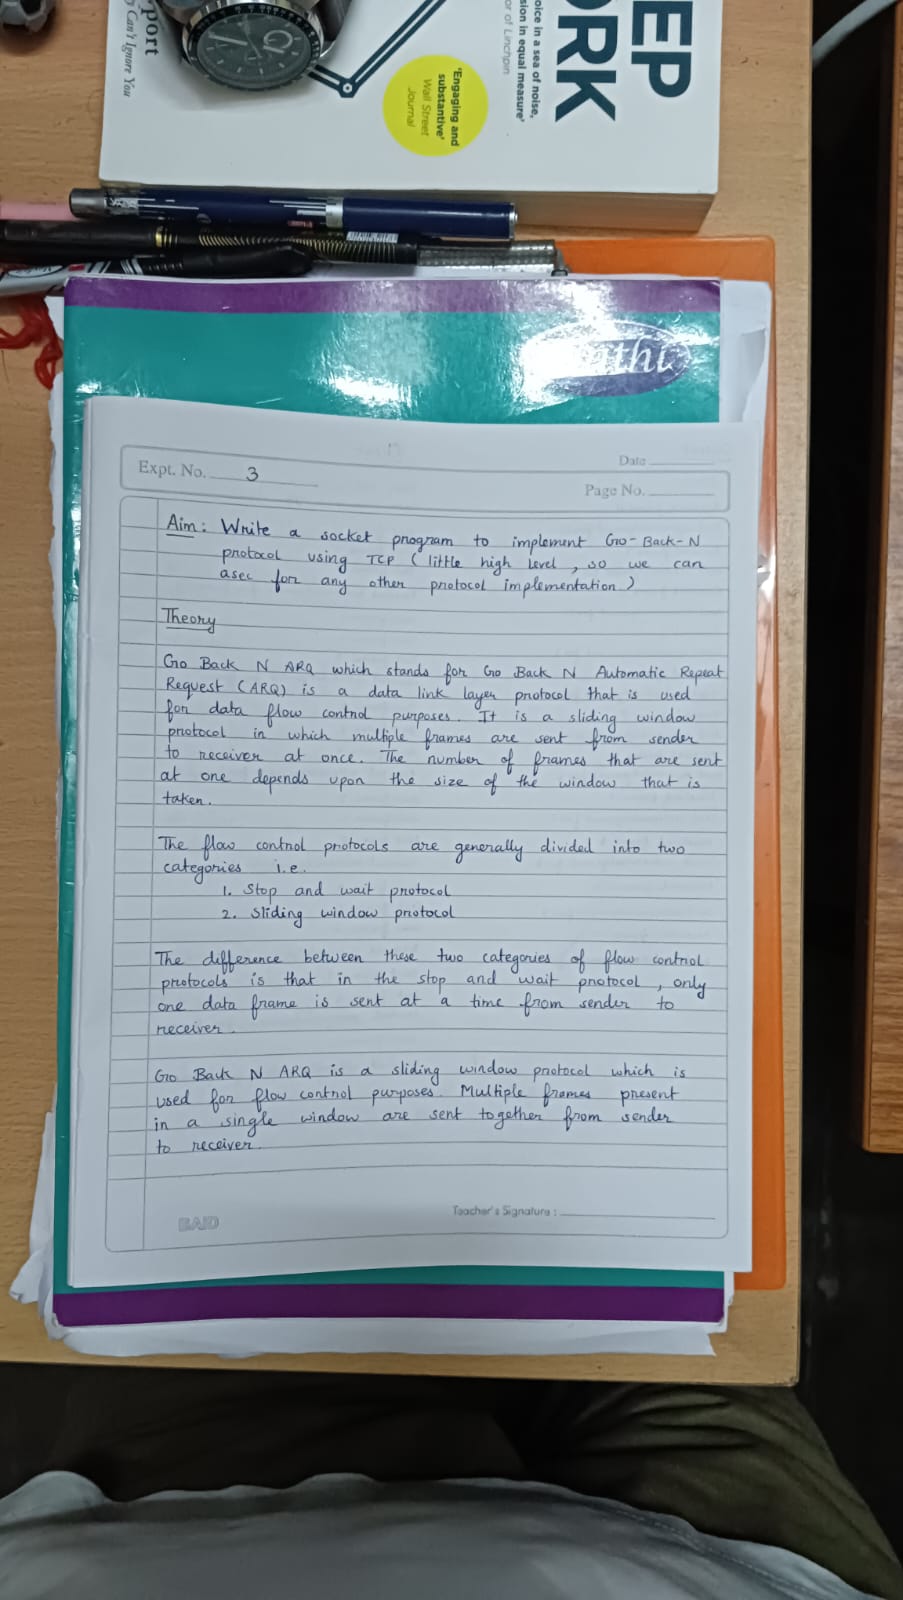 port
y Can't Ignore You
'Engaging and
substantive'
Wall Street
Journal
oice in a sea of noise,
sion in equal measure'
or of Linchpin
EP
ORK
Expt. No. 3
Date
Page No.
Aim: Write a socket program to implement Go-Back-N
protocol using TCP (little high level, so we can
asec for any other protocol implementation)
Theory
Go Back N ARQ which stands for Go Back N Automatic Repeat
Request (ARQ) is a data link layer protocol that is used
for data flow control purposes. It is a sliding window
protocol in which multiple frames are sent from sender
to receiver at once. The number of frames that are sent
at one depends upon the size of the window that is
taken.
The flow control protocols are generally divided into two
categories i.e.
1. Stop and wait protocol
2. Sliding window protocol
The difference between these two categories of flow control
protocols is that in the stop and wait protocol, only
one data frame is sent at a time from sender to
receiver.
Go Back N ARQ is a sliding window protocol which is
used for flow control purposes. Multiple frames present
in a single window are sent together from sender
to receiver.
BAID
Teacher's Signature :